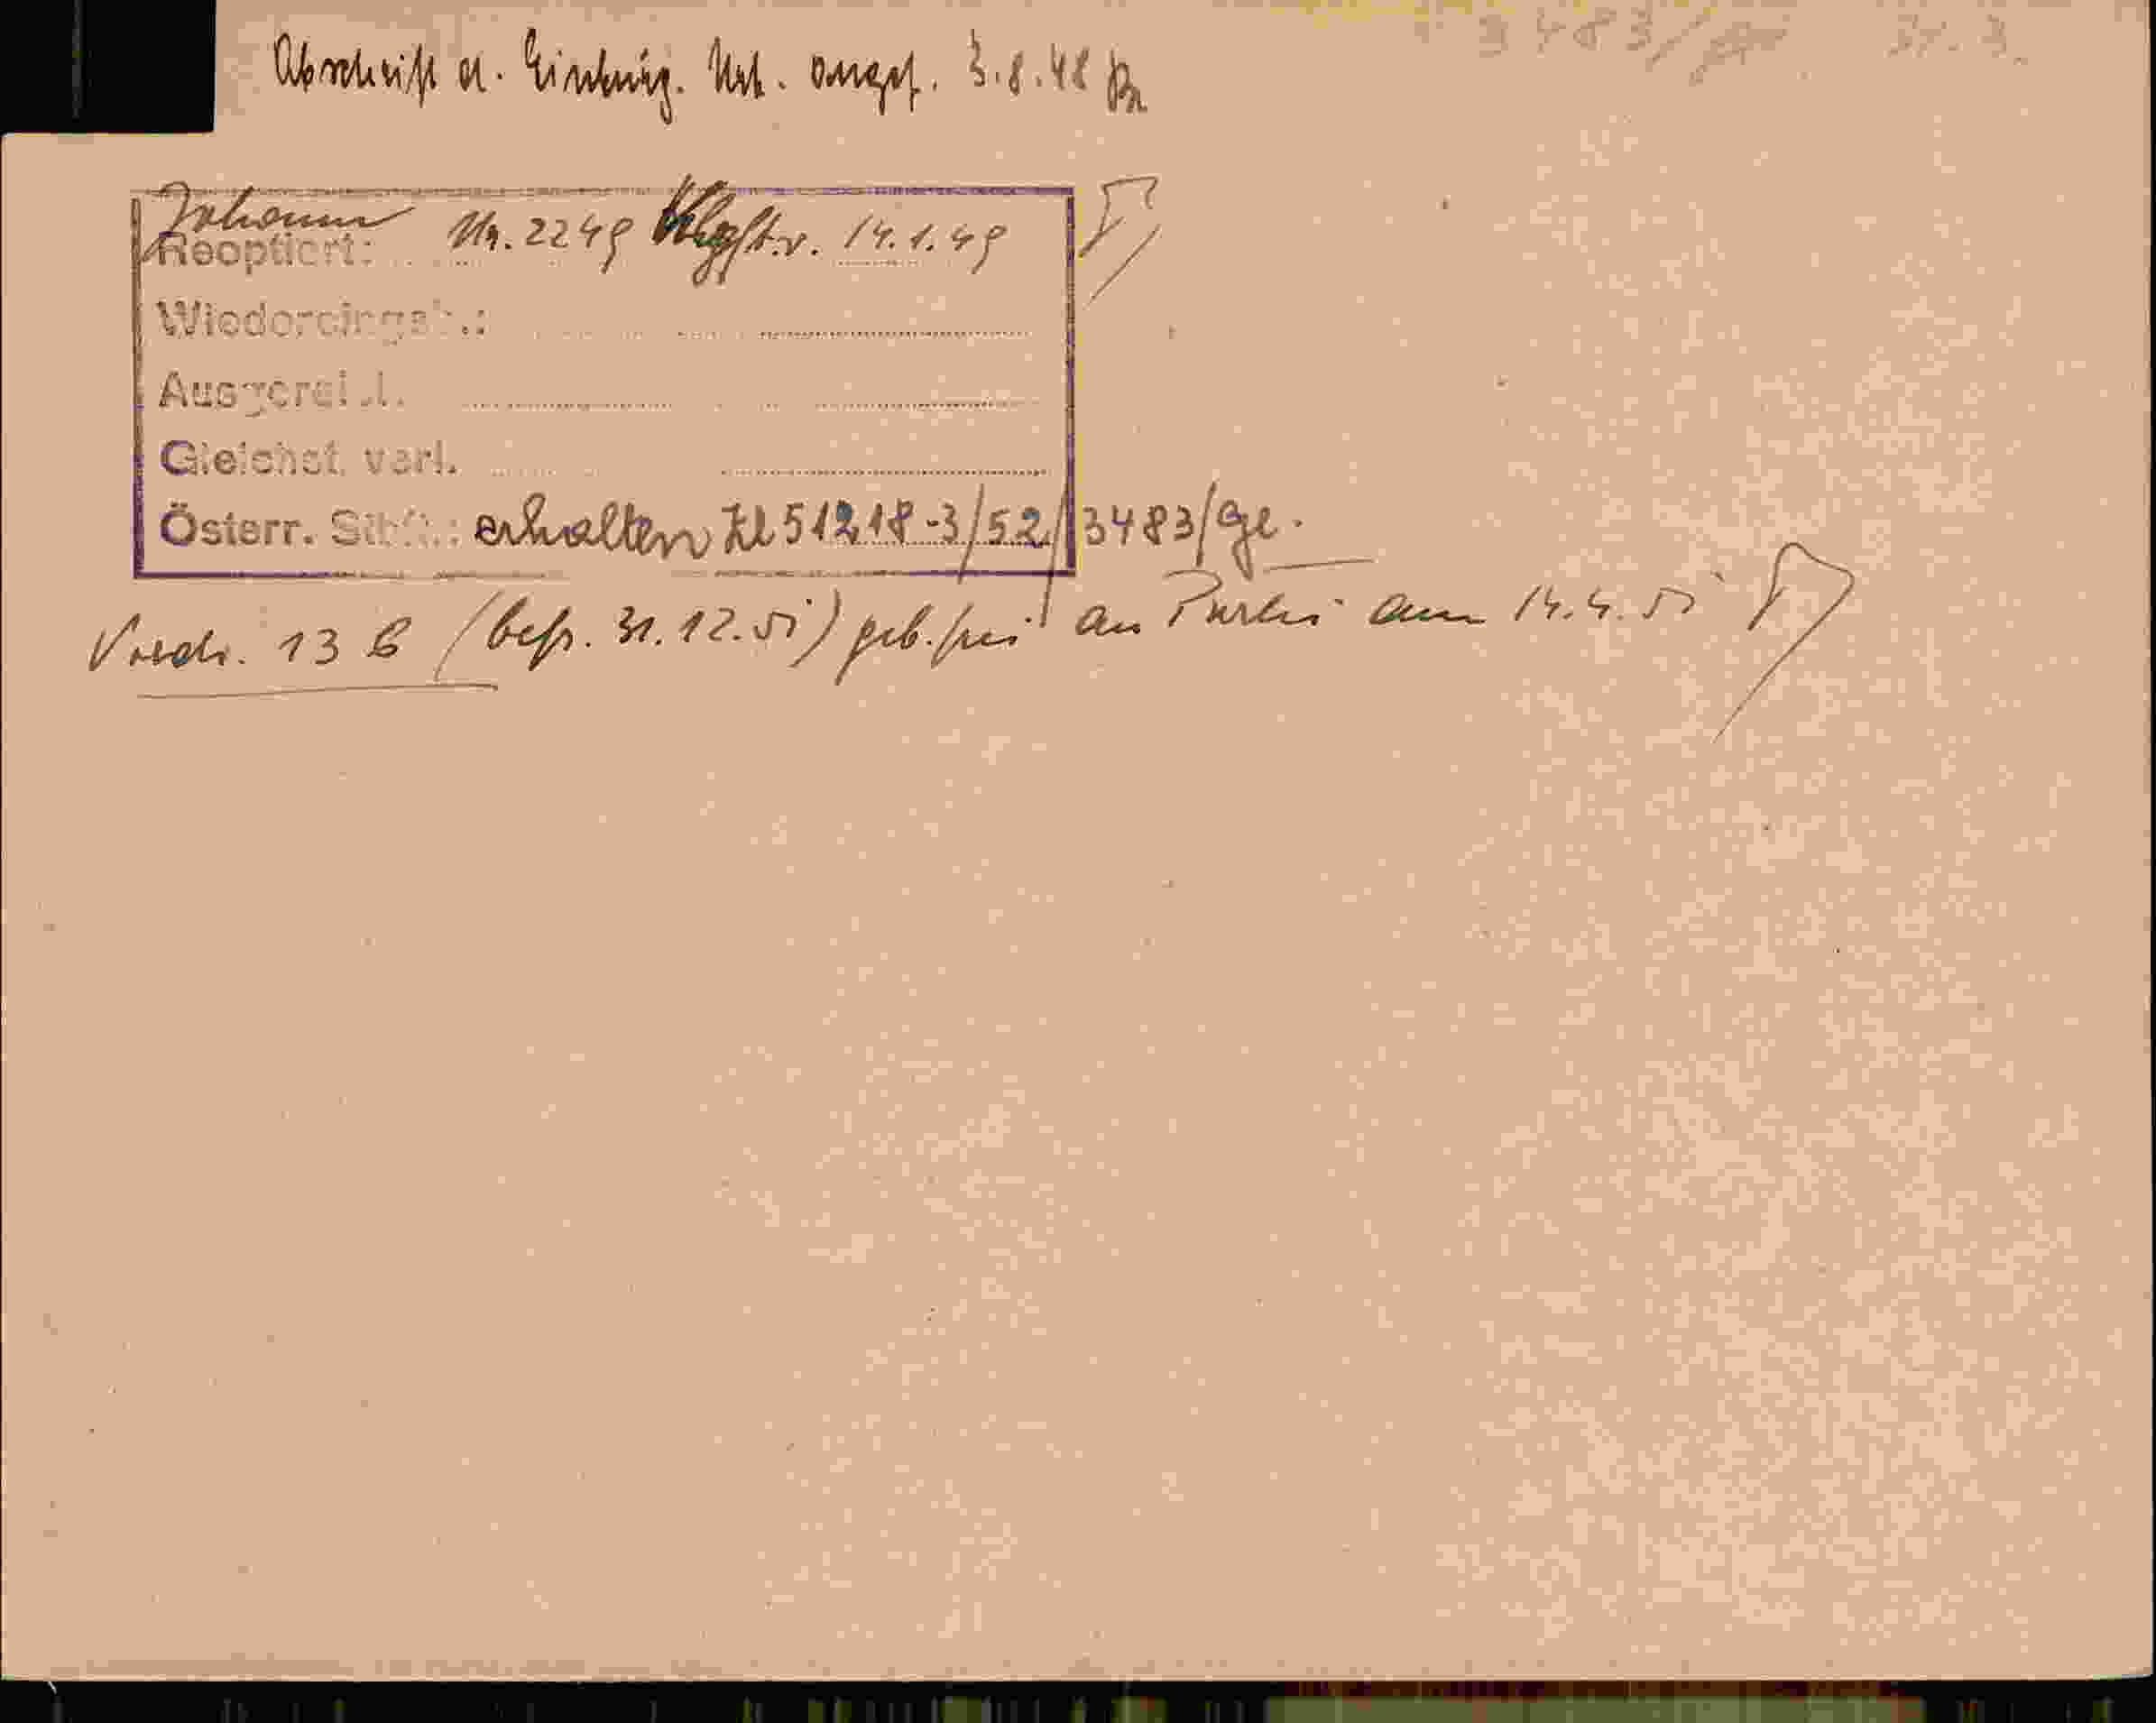 3483/ 31.3.
Abschrift d. Einbürg. Urk. angef. 3.8.48
Johann Nr. 2249 14.1.49
Reoptiert:
Wiedereingeb.:
Ausgereist.
Gleichst. verl.
Österr. Stbft.: erhalten Zl 51218-3/52/3483/Ge.
Vordr. 13 b (befr. 31.12.51) geb. frei an Partei am 14.4.51